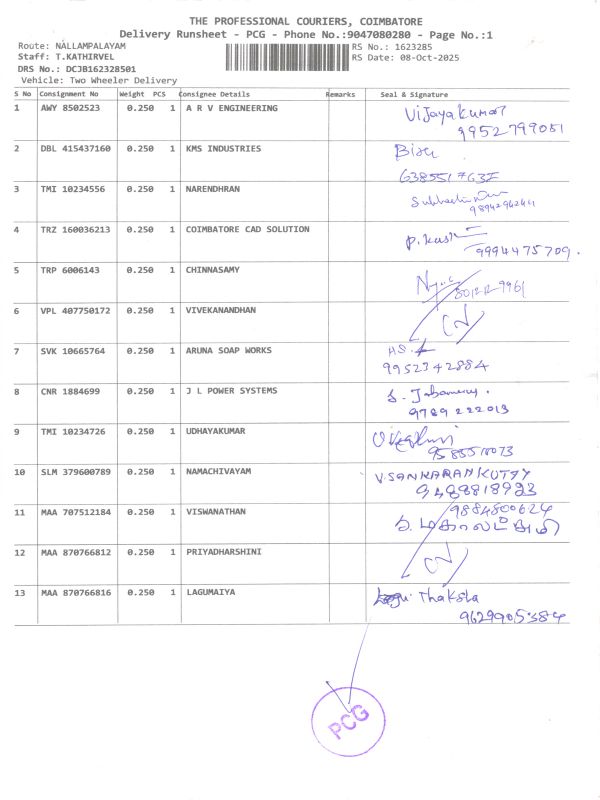 THE PROFESSIONAL COURIERS, COIMBATORE
Delivery Runsheet - PCG - Phone No.:9047080280 - Page No.:1
Route: NALLAMPALAYAM RS No.: 1623285
Staff: T.KATHIRVEL RS Date: 08-Oct-2025
DRS No.: DCJB162328501
Vehicle: Two Wheeler Delivery
S No Consignment No Weight PCS Consignee Details Remarks Seal & Signature
1 AWY 8502523 0.250 1 A R V ENGINEERING Vijayakumar
9952799051
2 DBL 415437160 0.250 1 KMS INDUSTRIES
3 TMI 10234556 0.250 1 NARENDHRAN
4 TRZ 160036213 0.250 1 COIMBATORE CAD SOLUTION
9994475709.
5 TRP 6006143 0.250 1 CHINNASAMY
6 VPL 407750172 0.250 1 VIVEKANANDHAN
7 SVK 10665764 0.250 1 ARUNA SOAP WORKS
9952342884
8 CNR 1884699 0.250 1 J L POWER SYSTEMS
9789222013
9 TMI 10234726 0.250 1 UDHAYAKUMAR
10 SLM 379600789 0.250 1 NAMACHIVAYAM V.SANKARANKUTTY
11 MAA 707512184 0.250 1 VISWANATHAN 9884800624
12 MAA 870766812 0.250 1 PRIYADHARSHINI
13 MAA 870766816 0.250 1 LAGUMAIYA Thaksta
9629905384
PCG